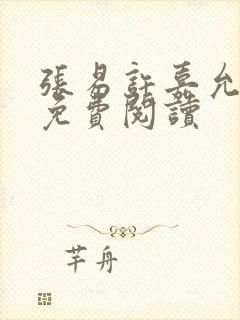 張易許嘉允
免費閱讀
芊舟